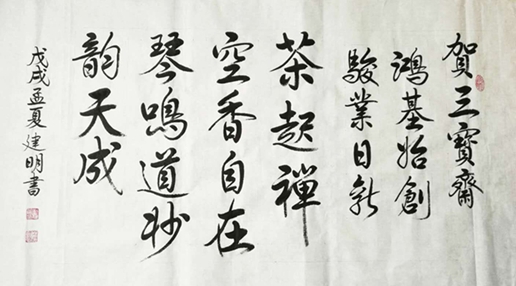 賀三寶齋
鴻基始創
駿業日新
茶起禪
空香自在
琴鳴道妙
韵天成
戊戌孟夏建明書